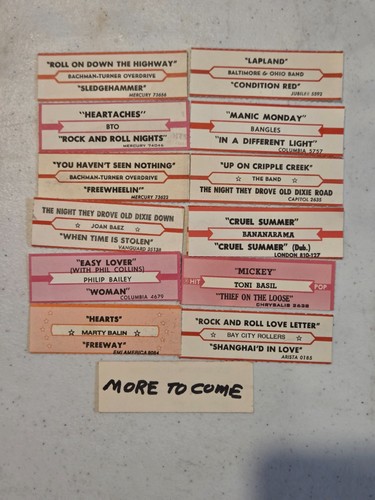 "ROLL ON DOWN THE HIGHWAY"
BACHMAN-TURNER OVERDRIVE
"SLEDGEHAMMER"
MERCURY 73656
"LAPLAND"
BALTIMORE & OHIO BAND
"CONDITION RED"
JUBILEE 5592
"HEARTACHES"
BTO
"ROCK AND ROLL NIGHTS"
MERCURY 74046
"MANIC MONDAY"
BANGLES
"IN A DIFFERENT LIGHT"
COLUMBIA 5757
"YOU HAVEN'T SEEN NOTHING"
BACHMAN-TURNER OVERDRIVE
"FREEWHEELIN"
MERCURY 73622
"UP ON CRIPPLE CREEK"
THE BAND
THE NIGHT THEY DROVE OLD DIXIE ROAD
CAPITOL 2635
THE NIGHT THEY DROVE OLD DIXIE DOWN
JOAN BAEZ
"WHEN TIME IS STOLEN"
VANGUARD 35138
"CRUEL SUMMER"
BANANARAMA
"CRUEL SUMMER" (Dub.)
LONDON 810-127
"EASY LOVER"
(WITH PHIL COLLINS)
PHILIP BAILEY
"WOMAN"
COLUMBIA 4679
"MICKEY"
HIT TONI BASIL POP
"THIEF ON THE LOOSE"
CHRYSALIS 2638
"HEARTS"
MARTY BALIN
"FREEWAY"
EMI AMERICA 8084
"ROCK AND ROLL LOVE LETTER"
BAY CITY ROLLERS
"SHANGHAI'D IN LOVE"
ARISTA 0185
MORE TO COME